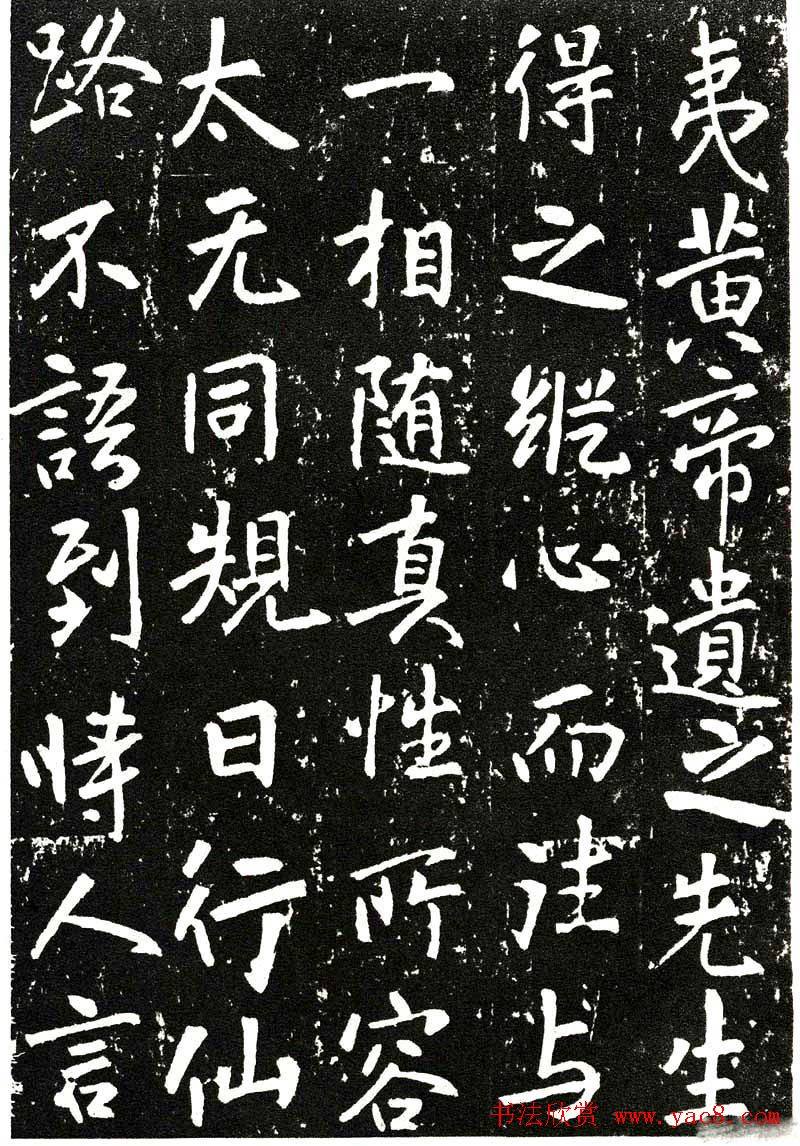 夷黄帝遺之先生
得之縱心而往与
一相随真性所容
太无同規日行仙
路不語到恃人言
书法欣赏 www.yac8.com